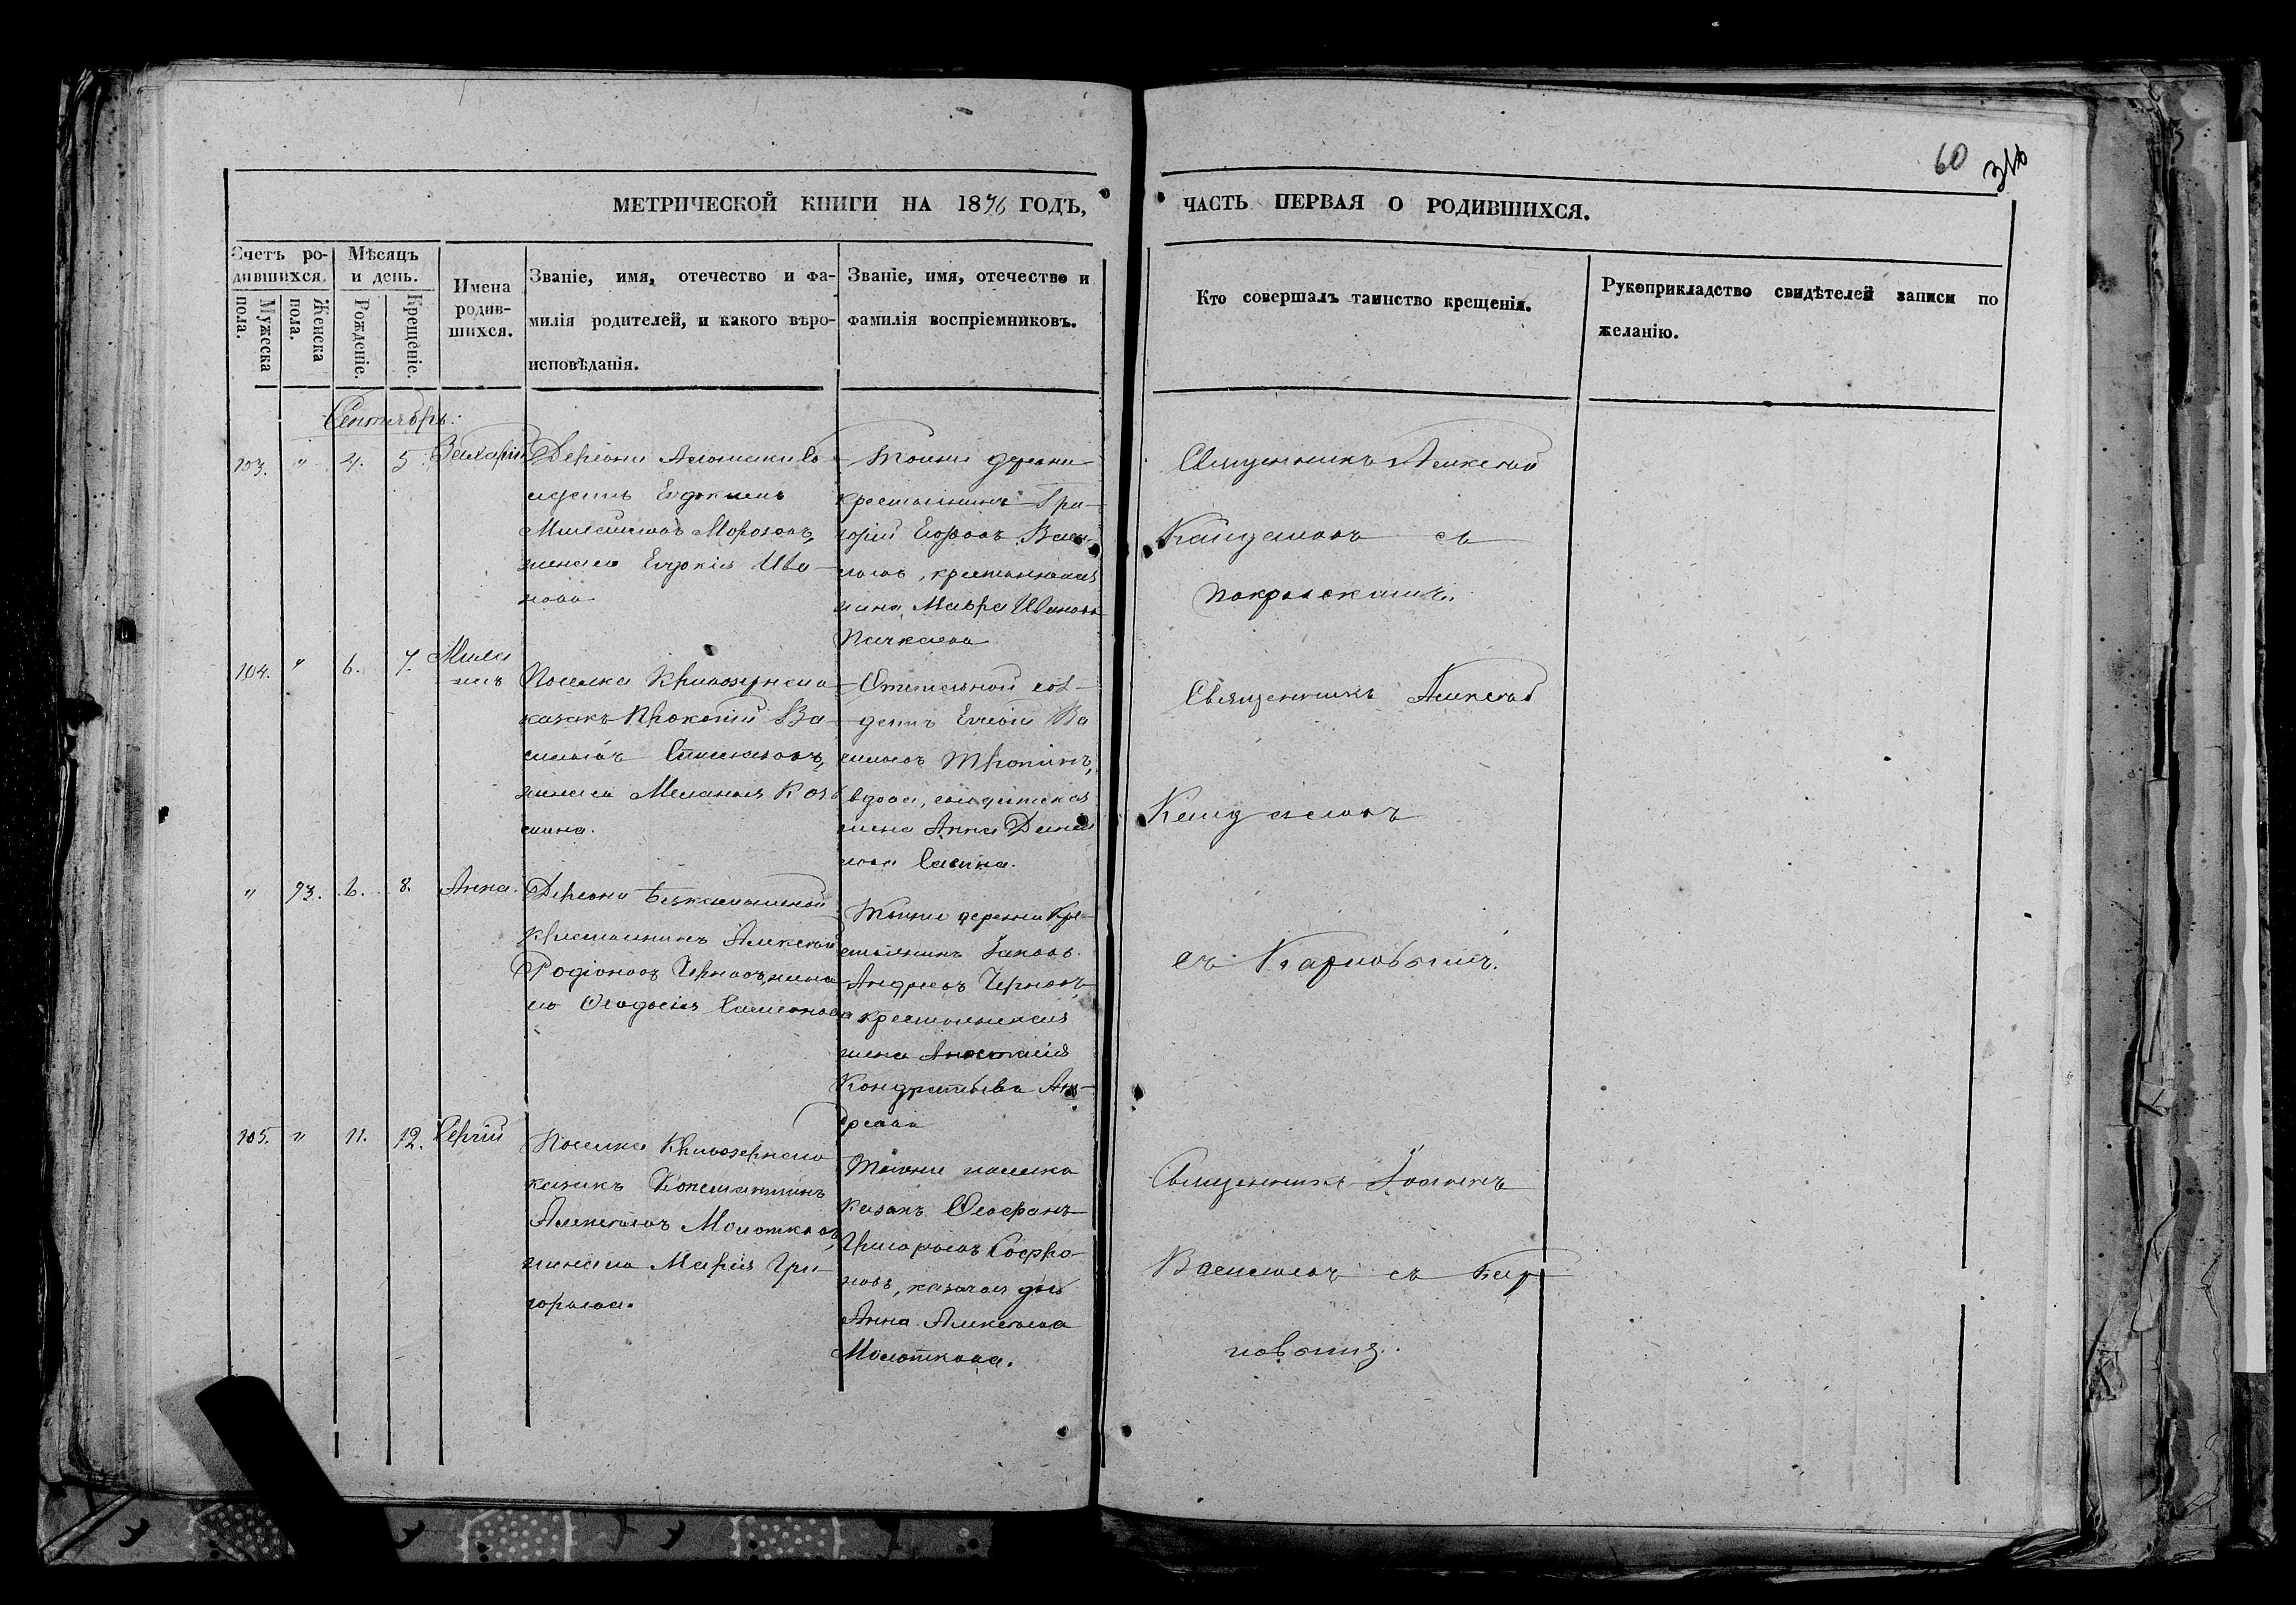 60
316
МЕТРИЧЕСКОЙ КНИГИ НА 1876 ГОДЪ,
ЧАСТЬ ПЕРВАЯ О РОДИВШИХСЯ.
Счетъ ро-
дившихся.
Мужеска
пола.
Женска
пола.
Мѣсяцъ
и день.
Рожденіе.
Крещеніе.
Имена
родив-
шихся.
Званіе, имя, отечество и фа-
милія родителей, и какого вѣро-
исповѣданія.
Званіе, имя, отечество и
фамилія воспріемниковъ.
Кто совершалъ таинство крещенія.
Рукоприкладство свидѣтелей записи по
желанію.
Сентябрь.
103. " 4. 5. Захарій
Деревни
Евдокимъ
Морозовъ,
жена его Евдокія Ива-
нова
Тойже деревни
крестьянинъ Гри-
горій Егоровъ Васи-
льевъ, крестьянская
жена Мавра Иванова
Священникъ Алексѣй
съ
104. " 6. 7.
Поселка Кривоозернаго
казакъ Прокопій Ва-
сильевъ
жена его Меланья Коз
мина.
Отставной сол-
датъ Ва
сильевъ
вдова, солдатская
жена Анна Дани
лова Савина.
Священникъ Алексѣй
" 93. 6. 8. Анна.
Деревни
крестьянинъ Алексѣй
Родіоновъ Черновъ, жена
его Ѳеодосія Самсонова
Тойже деревни кре-
стьянинъ Іаковъ
Андреевъ Черновъ,
крестьянская
жена Анастасія
Кондратьева Ан-
дреева
съ Карповымъ.
105. " 11. 12. Сергій
Поселка Кривоозернаго
казакъ Константинъ
Алексѣевъ Молотковъ,
жена его Марія Гри
горьева.
Тогоже поселка
казакъ Ѳеофанъ
Григорьевъ Софро-
новъ, казачья
Анна Алексѣева
Молоткова.
Священникъ Іоаннъ
Васильевъ съ Кар
повымъ.